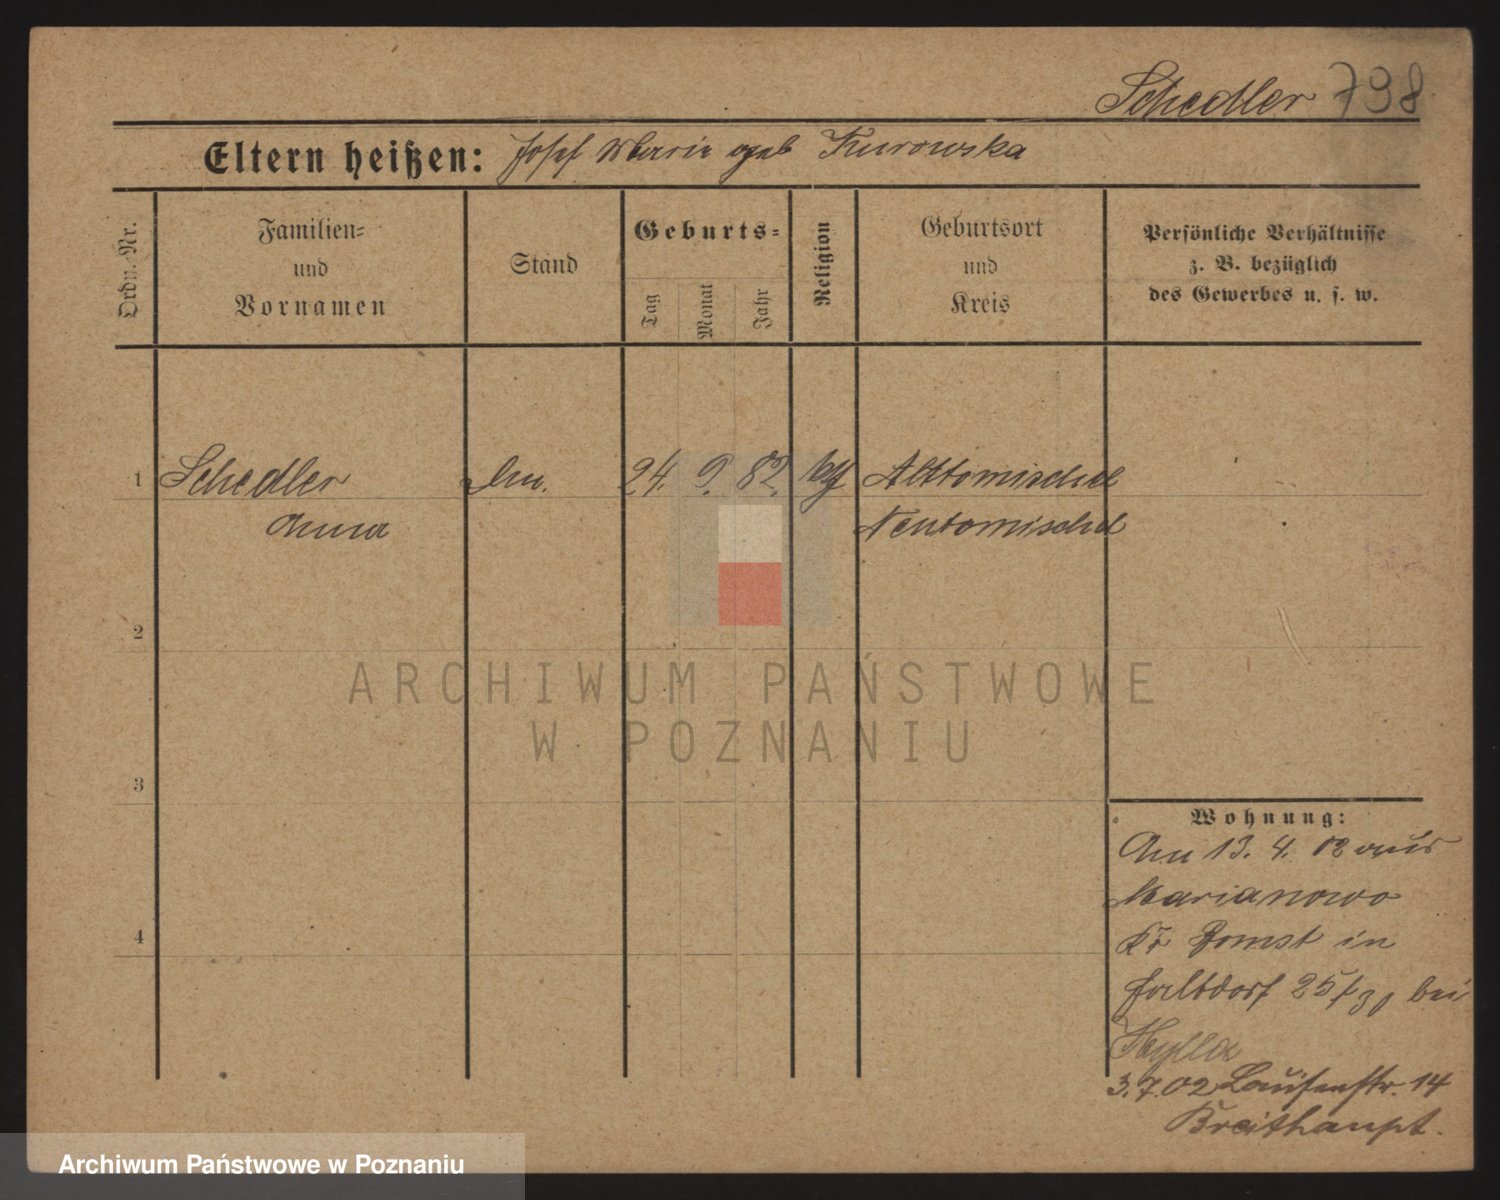 Schedler 798
Eltern heißen: Josef Marie geb Kurowska
Ordn.-Nr.
Familien-
und
Vornamen
Stand
Geburts-
Tag
Monat
Jahr
Religion
Geburtsort
und
Kreis
Persönliche Verhältnisse
z. B. bezüglich
des Gewerbes u. s. w.
1 Schedler 24. 9. 82. Alttomischel
Anna Neutomischel
2
ARCHIWUM PAŃSTWOWE
W POZNANIU
3
Wohnung:
Am 13. 4. 02 aus
Marianowo
4
Kr Bomst in
bei
Hylla
3.7.02 Louisenstr. 14
Breithaupt.
Archiwum Państwowe w Poznaniu